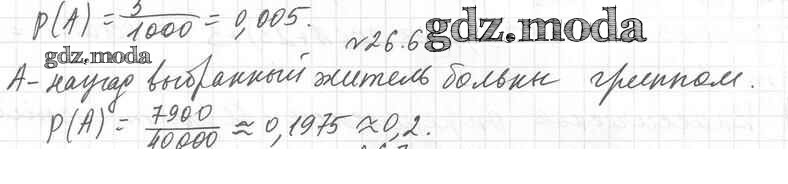 P(A) = 5/1000 = 0,005.
№26.6 gdz.moda
gdz.moda
А - наугад выбранный житель болен гриппом.
P(A) = 7900/40000 ≈ 0,1975 ≈ 0,2.